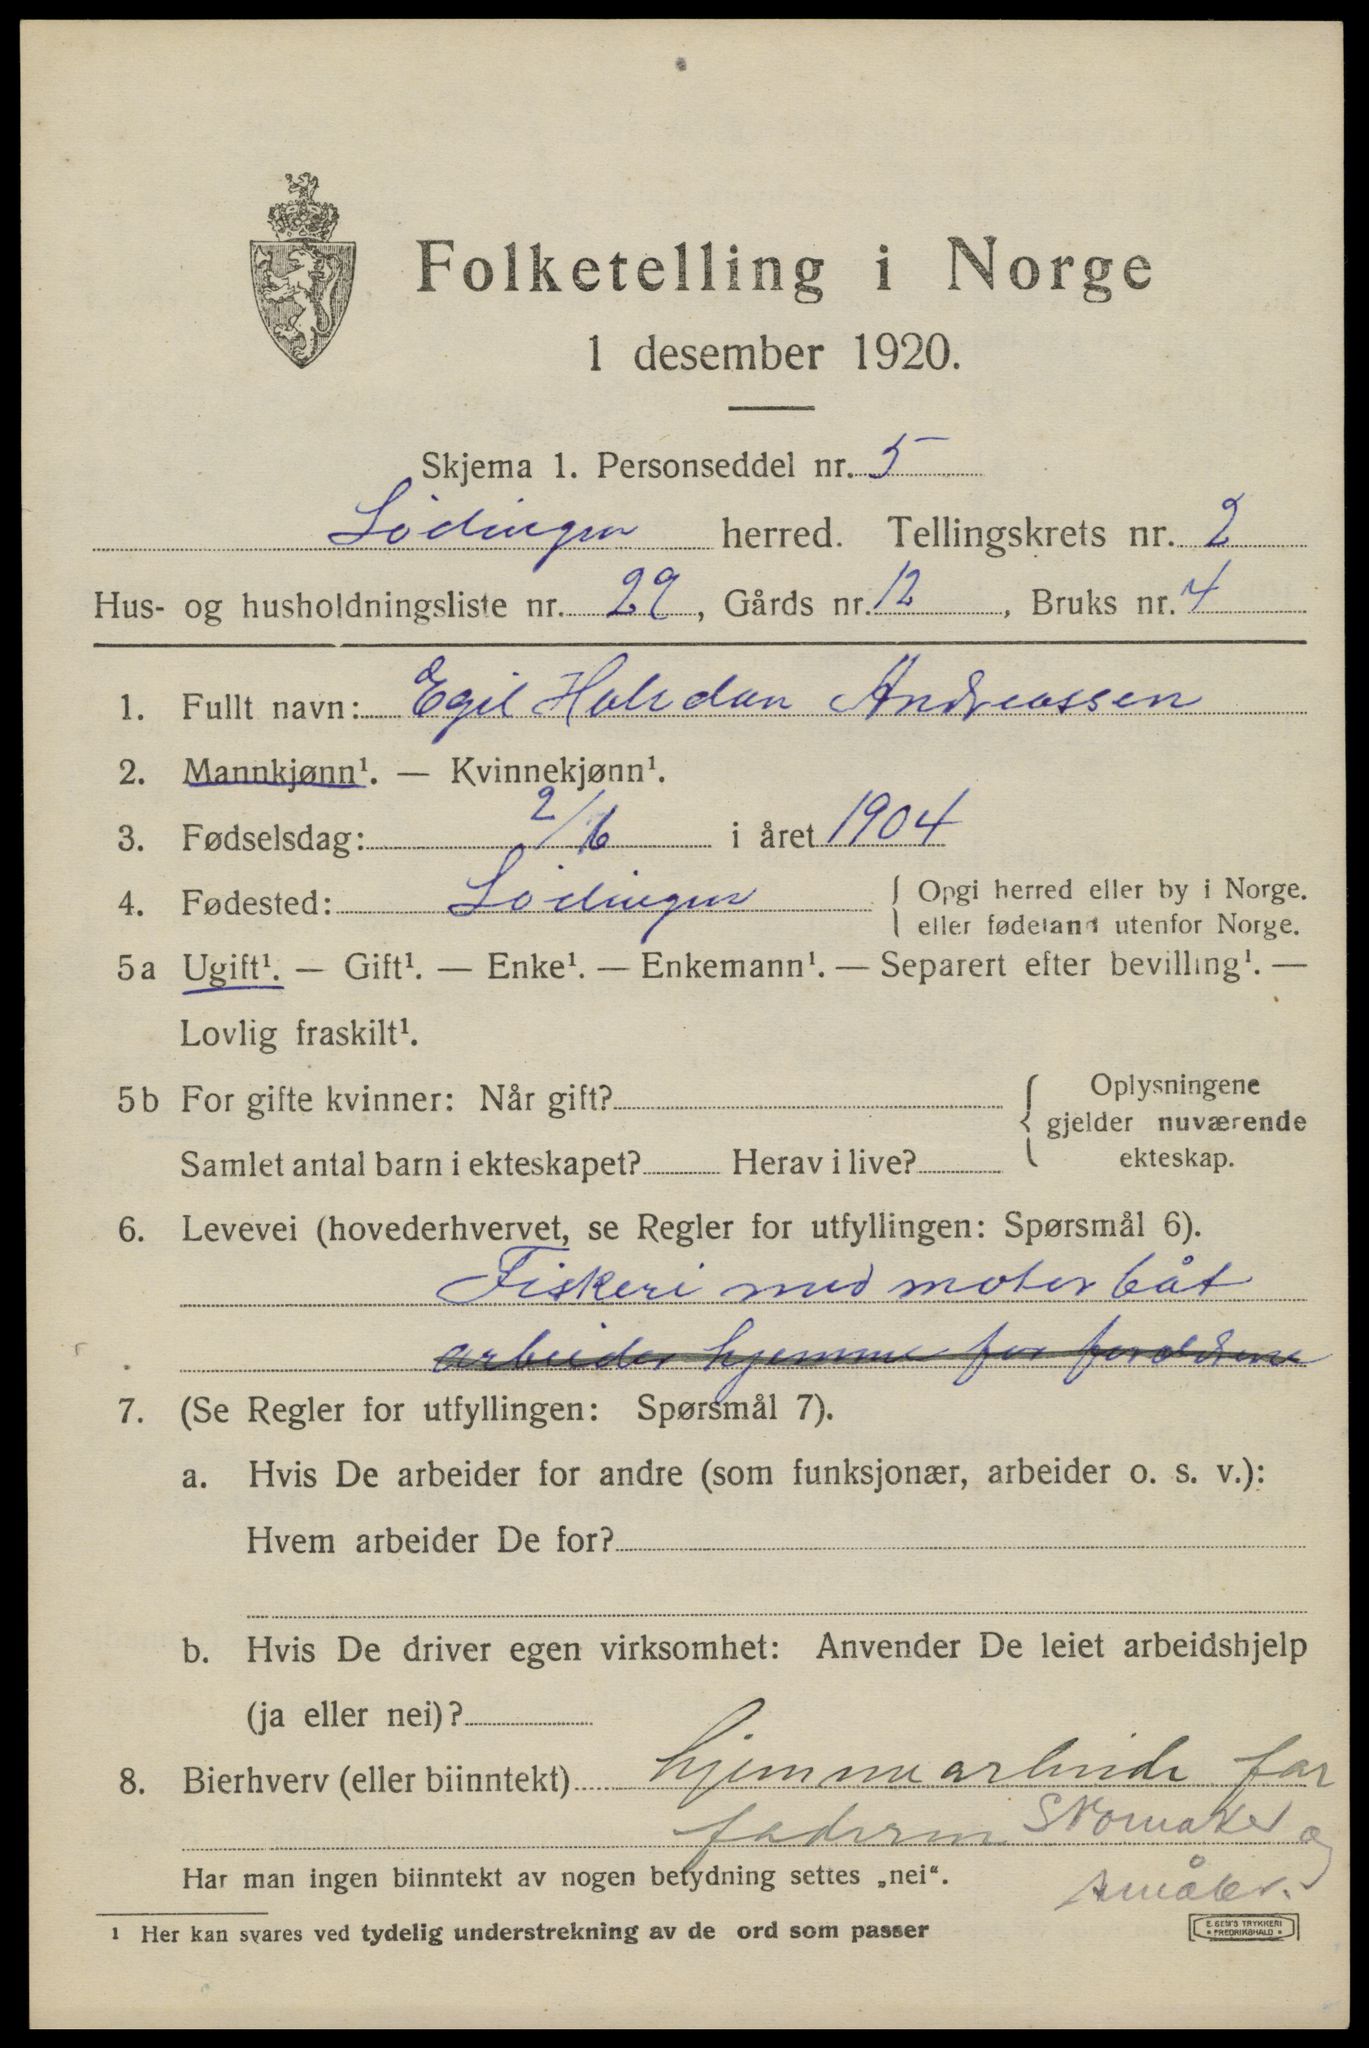 Folketelling i Norge
1 desember 1920.
Skjema 1. Personseddel nr. 5
Lödingen herred. Tellingskrets nr. 2
Hus- og husholdningsliste nr. 29, Gårds nr. 12, Bruks nr. 4
1. Fullt navn: Egil Halvdan Andreassen
2. Mannkjønn¹. — Kvinnekjønn¹.
3. Fødselsdag: 2/6 i året 1904
4. Fødested: Lödingen { Opgi herred eller by i Norge.
eller fødeland utenfor Norge.
5a Ugift¹. — Gift¹. — Enke¹. — Enkemann¹. — Separert efter bevilling¹. —
Lovlig fraskilt¹.
5b For gifte kvinner: Når gift? { Oplysningene
gjelder nuværende
Samlet antal barn i ekteskapet? Herav i live? ekteskap.
6. Levevei (hovederhvervet, se Regler for utfyllingen: Spørsmål 6).
Fiskeri med motorbåt
arbeider hjemme for foreldrene
7. (Se Regler for utfyllingen: Spørsmål 7).
a. Hvis De arbeider for andre (som funksjonær, arbeider o. s. v.):
Hvem arbeider De for?
b. Hvis De driver egen virksomhet: Anvender De leiet arbeidshjelp
(ja eller nei)?
8. Bierhverv (eller biinntekt) hjemmearbeide for
faderen Skomaker og
småbr.
Har man ingen biinntekt av nogen betydning settes „nei“.
¹ Her kan svares ved tydelig understrekning av de ord som passer
E. SEM'S TRYKKERI
FREDRIKSHALD